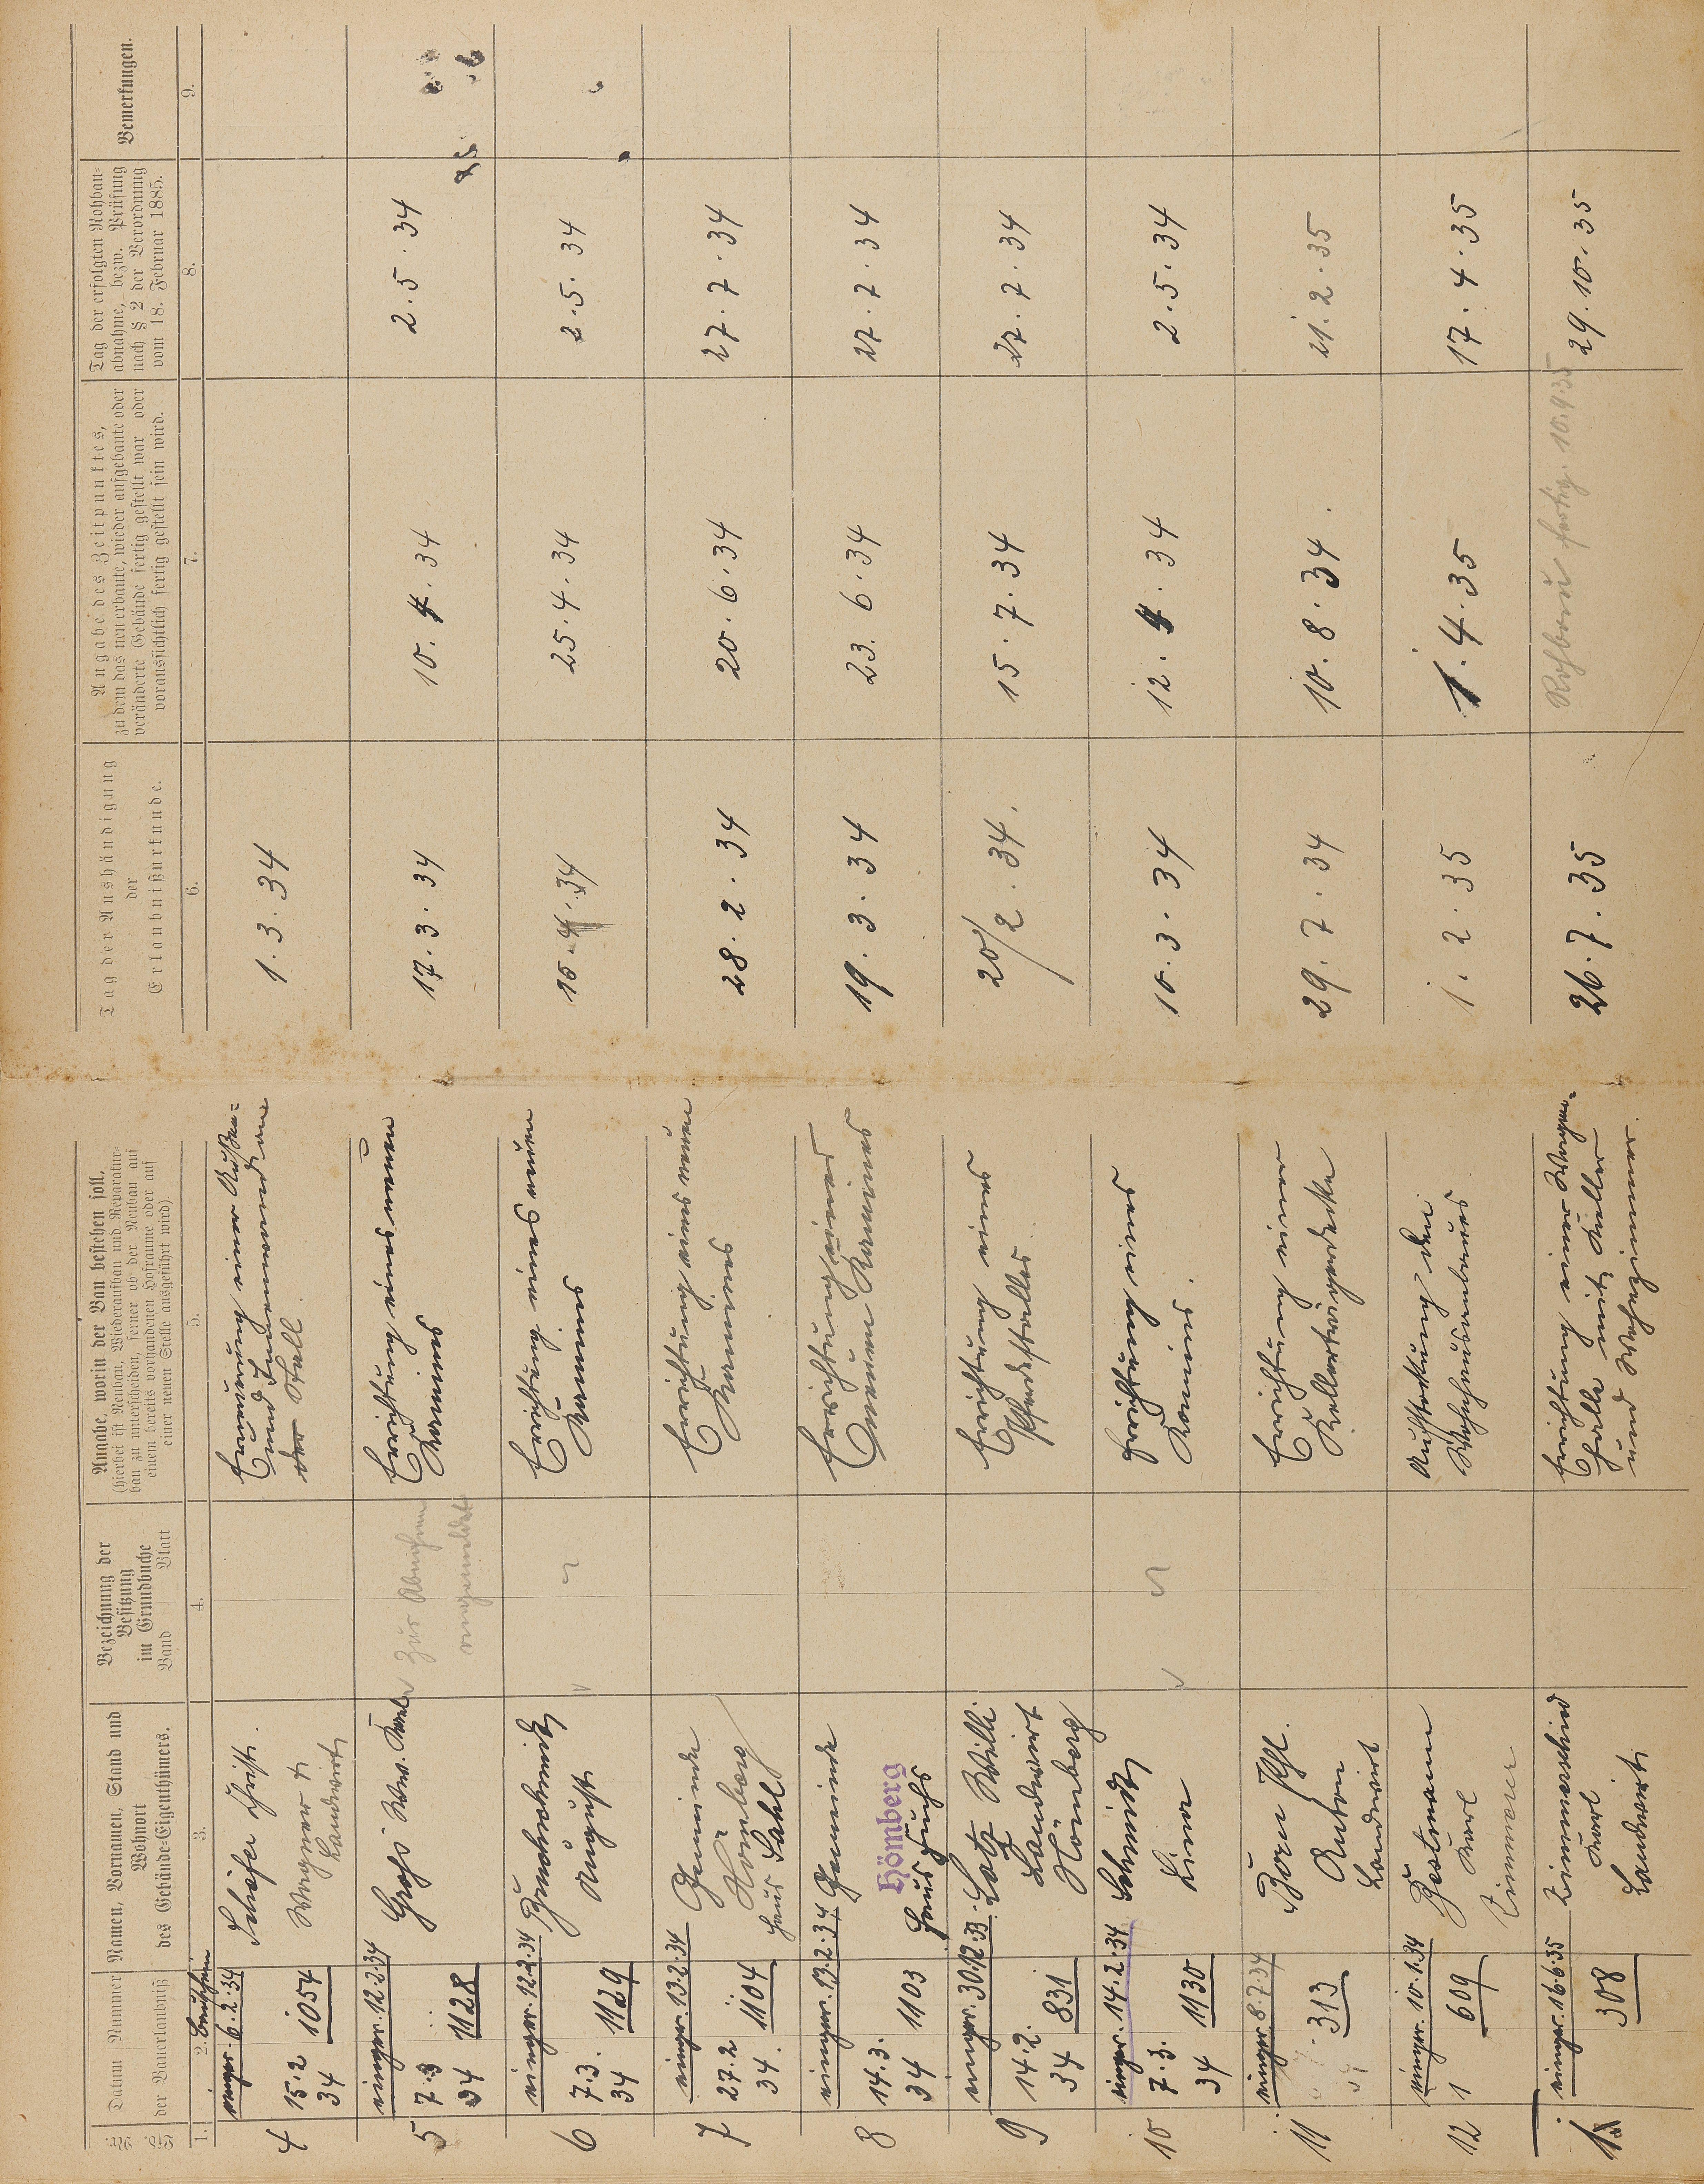 Datum Nummer
der Bauerlaubniß
Namen, Vornamen, Stand und
Wohnort
des Gebäude-Eigenthümers.
Bezeichnung der
Besitzung
im Grundbuche
Band Blatt
Angabe, worin der Bau bestehen soll,
(hierbei ist Neubau, Wiederaufbau und Reparatur-
bau zu unterscheiden, ferner ob der Neubau auf
einem bereits vorhandenen Hofraume oder auf
einer neuen Stelle ausgeführt wird).
Tag der Aushändigung
der
Erlaubnißurkunde.
Angabe des Zeitpunktes,
zu dem das neu erbaute, wieder aufgebaute oder
veränderte Gebäude fertig gestellt war oder
voraussichtlich fertig gestellt sein wird.
Tag der erfolgten Rohbau-
abnahme, bezw. Prüfung
nach § 2 der Verordnung
vom 18. Februar 1885.
Bemerkungen.
1. 2. 3. 4. 5. 6. 7. 8. 9.
4
einger. 6.2.34
15.2
34
1054
Schäfer Christ.
Wagner &
Landwirt
Erneuerung einer Außen=
und Innenwand an
der Stall
1.3.34
5
einger. 12.2.34
7.3
34
1128
Groß Ww. Karl
Zur Abnahme
angemeldet
Errichtung eines neuen
Kamines
17.3.34
10.4.34
2.5.34
6
einger. 12.2.34
7.3.
34
1129
August
Errichtung eines neuen
Kamines
15.4.34
25.4.34
2.5.34
7
einger. 13.2.34
27.2
34.
1104
Gemeinde
Hömberg
Haus Sahl
Errichtung eines neuen
Kamines
28.2.34
20.6.34
27.7.34
8
einger. 13.2.34
14.3.
34
1103
Gemeinde
Hömberg
Haus Fuchs
Errichtung eines
neuen Kamines
19.3.34
23.6.34
27.7.34
9
einger. 30.12.33
14.2.
34
831
Lotz Willi
Landwirt
Hömberg
Errichtung eines
Pferdestalles
20/2.34.
15.7.34
27.7.34
10
einger. 14.2.34
7.3.
34
1130
Schmidt
Lina
Errichtung eines
Kamines.
10.3.34
12.4.34
2.5.34
11
einger. 8.7.34
313
Born Phl.
Anton
Landwirt
Errichtung einer
29.7.34
10.8.34.
21.2.35
12
einger. 10.1.34
1
609
Karl
Zimmerer
Aufstockung des
Wohnhausanbaues
1.2.35
1.4.35
17.4.35
einger. 16.6.35
308
Zimmerschied
Karl
Landwirt
Errichtung einer Wagen=
halle mit Keller
und Wohnzimmer.
26.7.35
Rohbau fertig 10.9.35
29.10.35